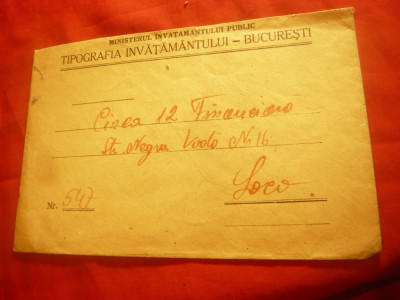 MINISTERUL INVATAMANTULUI PUBLIC
TIPOGRAFIA INVĂȚĂMÂNTULUI – BUCUREȘTI
Circa 12 Financiara
Str. Negru Voda Nr 16.
Loco
Nr. 547